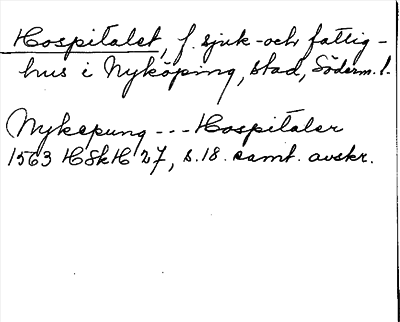 Hospitalet, f. sjuk- och fattig-
hus i Nyköping, stad, Söderm. l.
Nykepung --- Hospitaler
1563 HSkH 27, s. 18. samt. avskr.